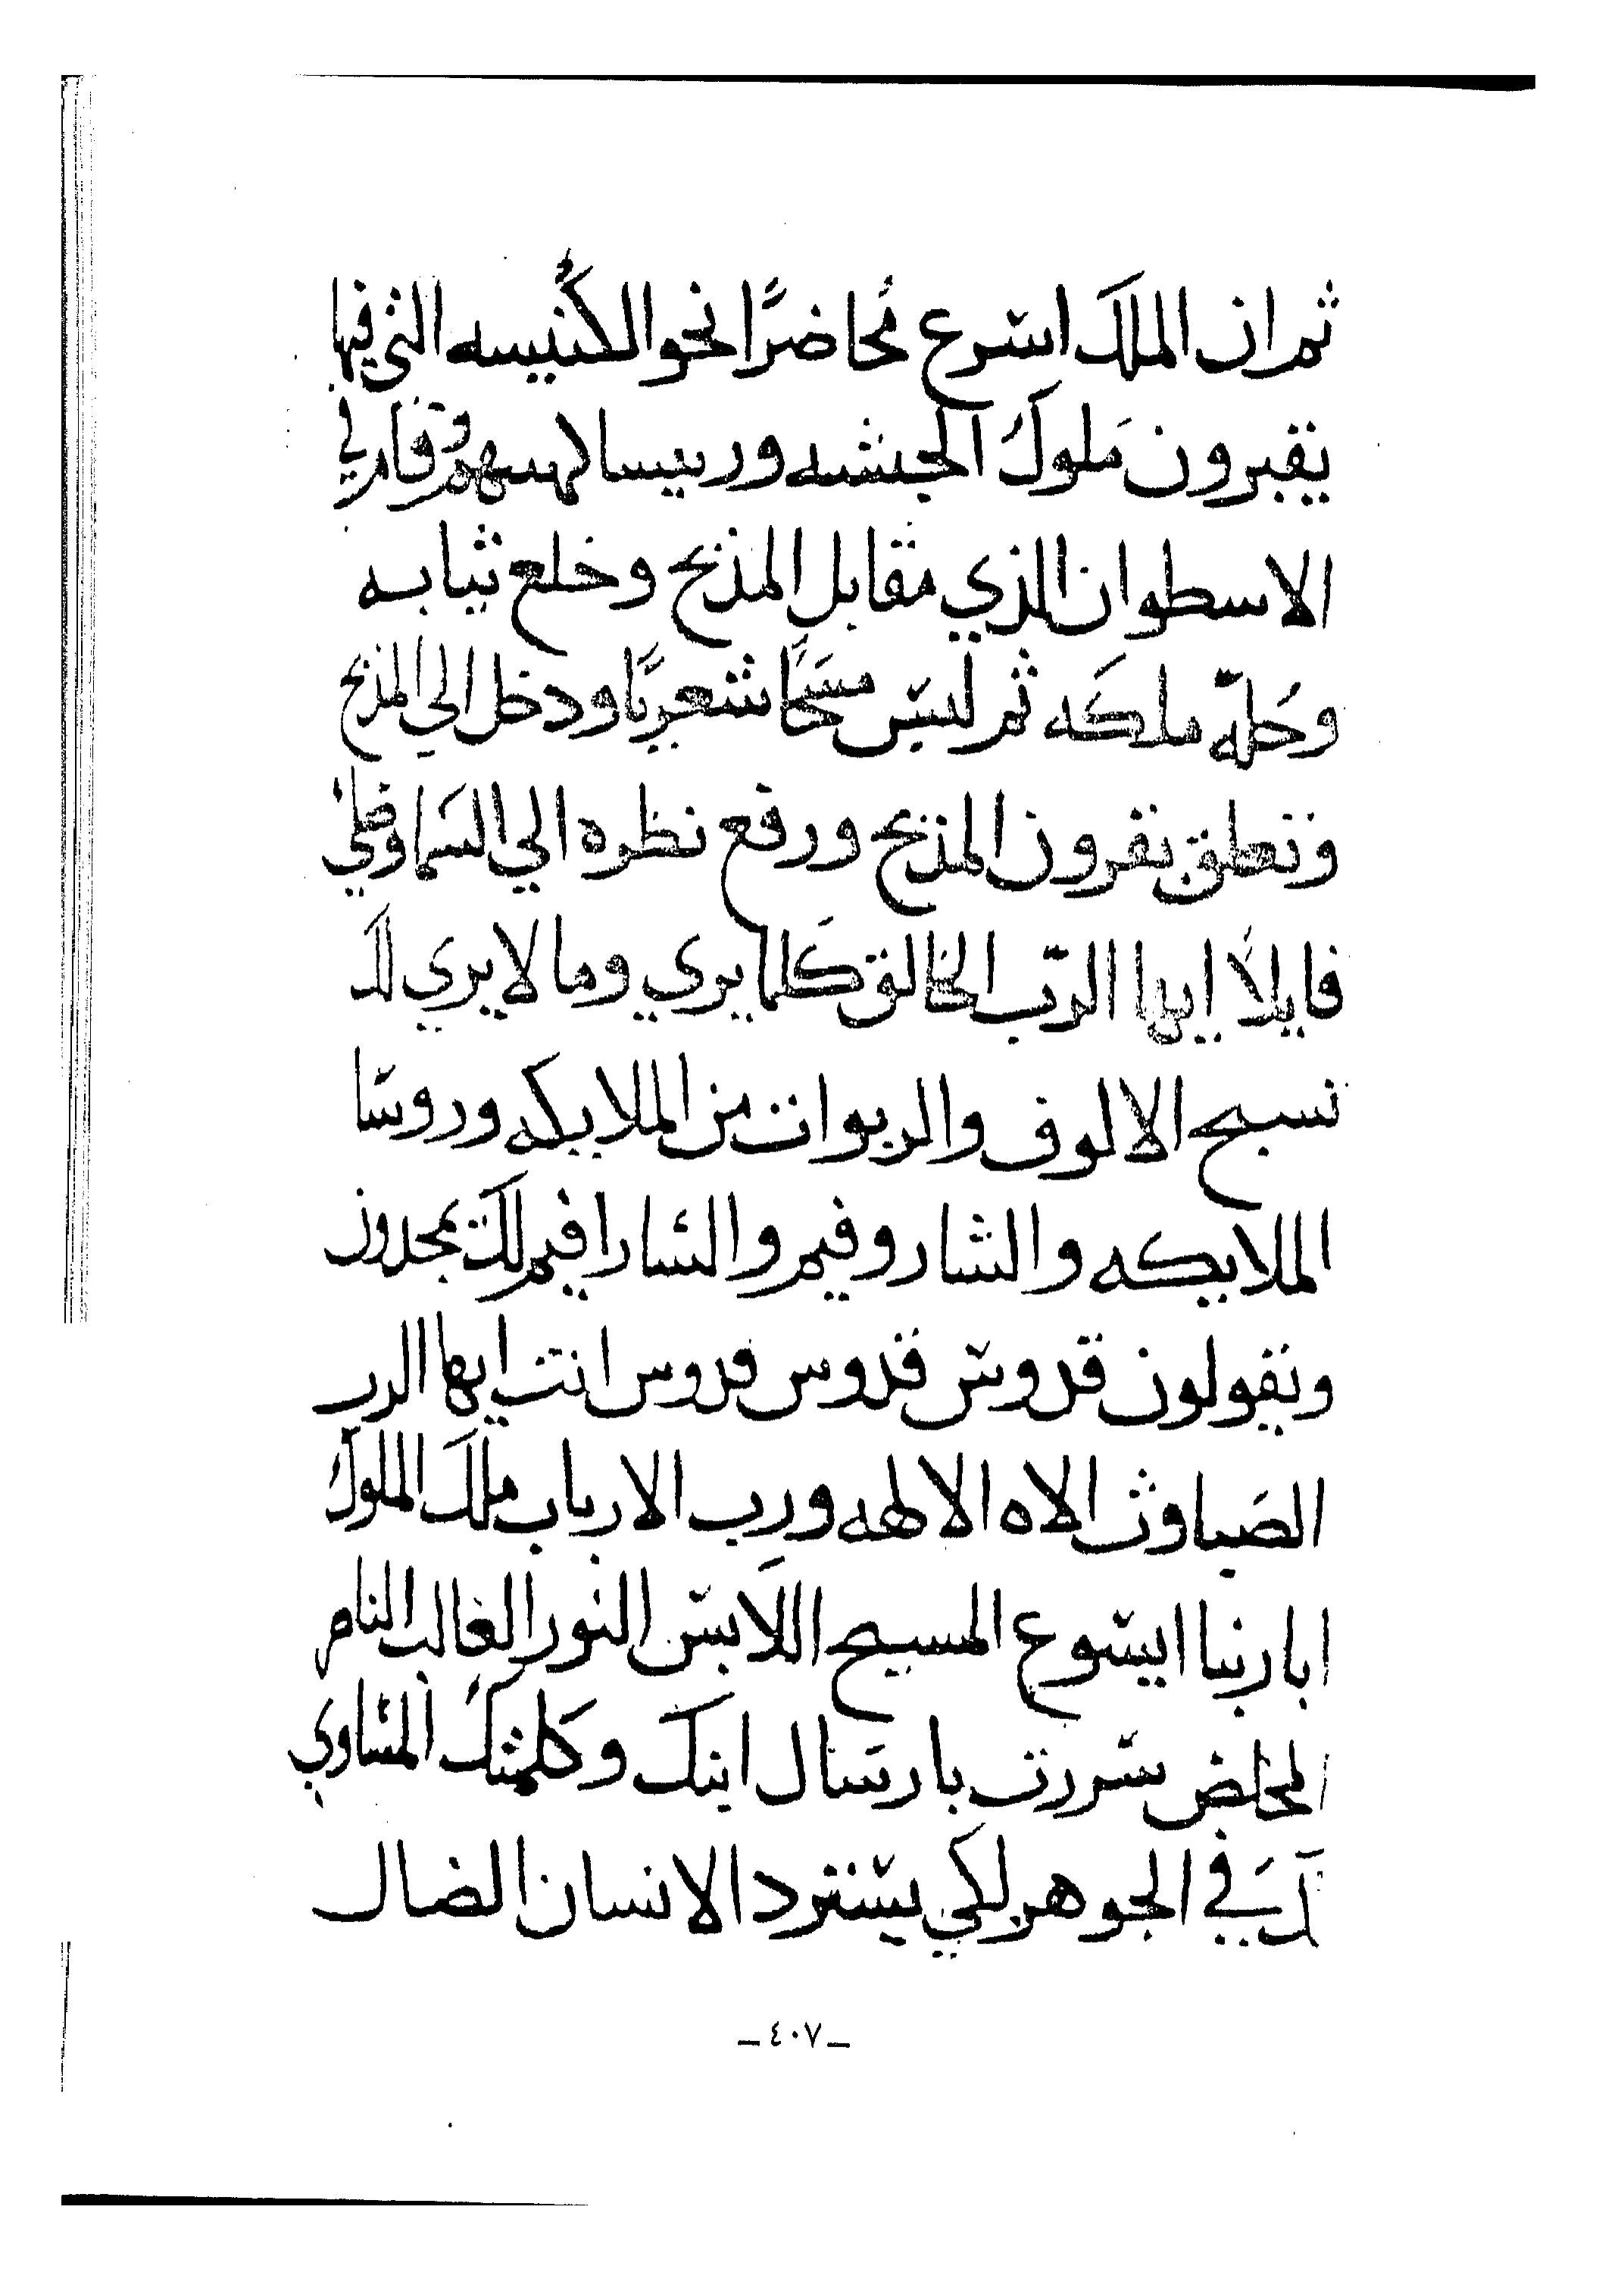 ثم ان الملك اسرع مُحاضرًا نحو الكنيسه التي فيها
يقبرون ملوك الحبشه ورييسا كهنتهم وقام في
الاسطوان الذي مقابل المذبح وخلع ثيابه
وحُلّه ملكه ثم لبس مسحًا شعريًا ودخل الي المذبح
وتعلق بقرون المذبح ورفع نظره الي السما وصلي
قايلاً ايها الرب الخالق كلما يري وما لا يري لك
تسبح الالوف والربوات من الملايكه وروسا
الملايكه والشاروفيم والسارافيم لك يمجدون
ويقولون قدوس قدوس قدوس انت ايها الرب
الصباوت الاه الالهه ورب الارباب ملك الملوك
ابا ربنا ايسوع المسيح اللابس النور الغالب التام
المخلص سررت بارسال ابنك وكلمتك المساوي
لك في الجوهر لكي يسترد الانسان الضال
– ٤٠٧ –